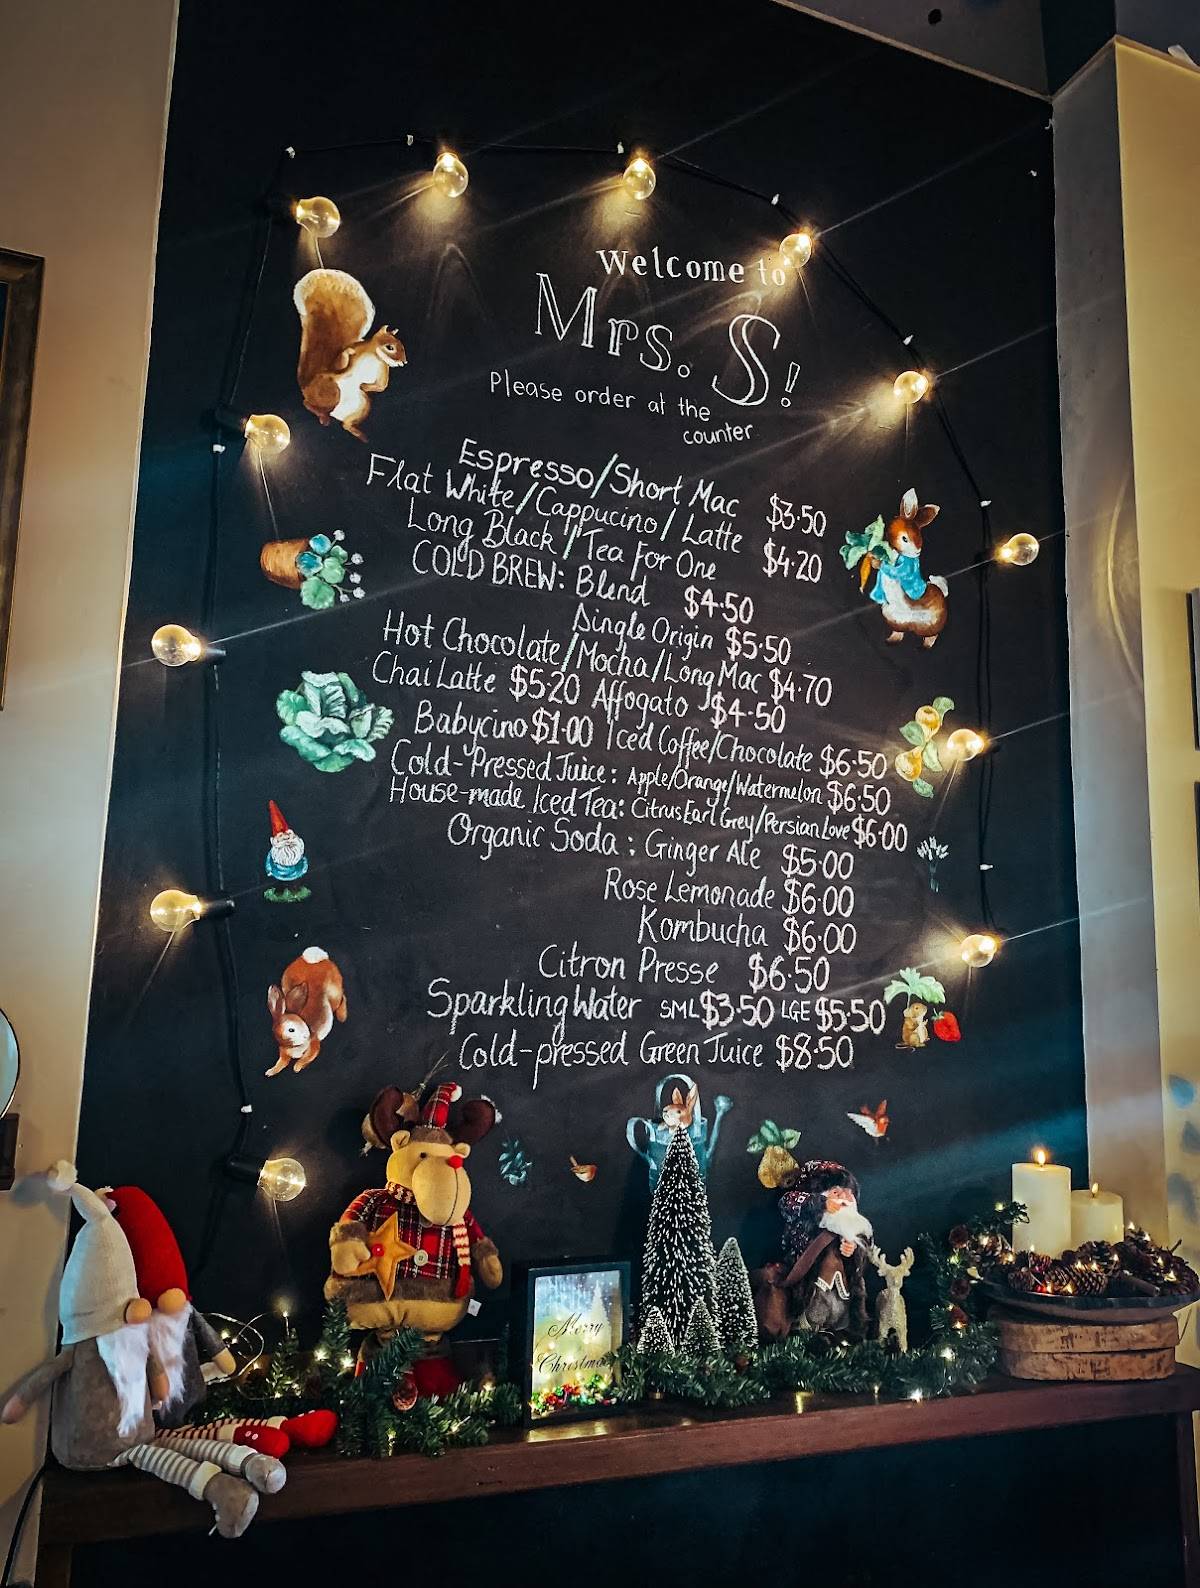 Welcome to
Mrs. S!
Please order at the
counter
Espresso/Short Mac $3.50
Flat White/Cappucino/Latte $4.20
Long Black/Tea for One
COLD BREW: Blend $4.50
Single Origin $5.50
Hot Chocolate/Mocha/Long Mac $4.70
Chai Latte $5.20 Affogato $4.50
Babycino $1.00 Iced Coffee/Chocolate $6.50
Cold-Pressed Juice: Apple/Orange/Watermelon $6.50
House-made Iced Tea: Citrus Earl Grey/Persian Love $6.00
Organic Soda: Ginger Ale $5.00
Rose Lemonade $6.00
Kombucha $6.00
Citron Presse $6.50
Sparkling Water SML $3.50 LGE $5.50
Cold-pressed Green Juice $8.50
Merry
Christmas